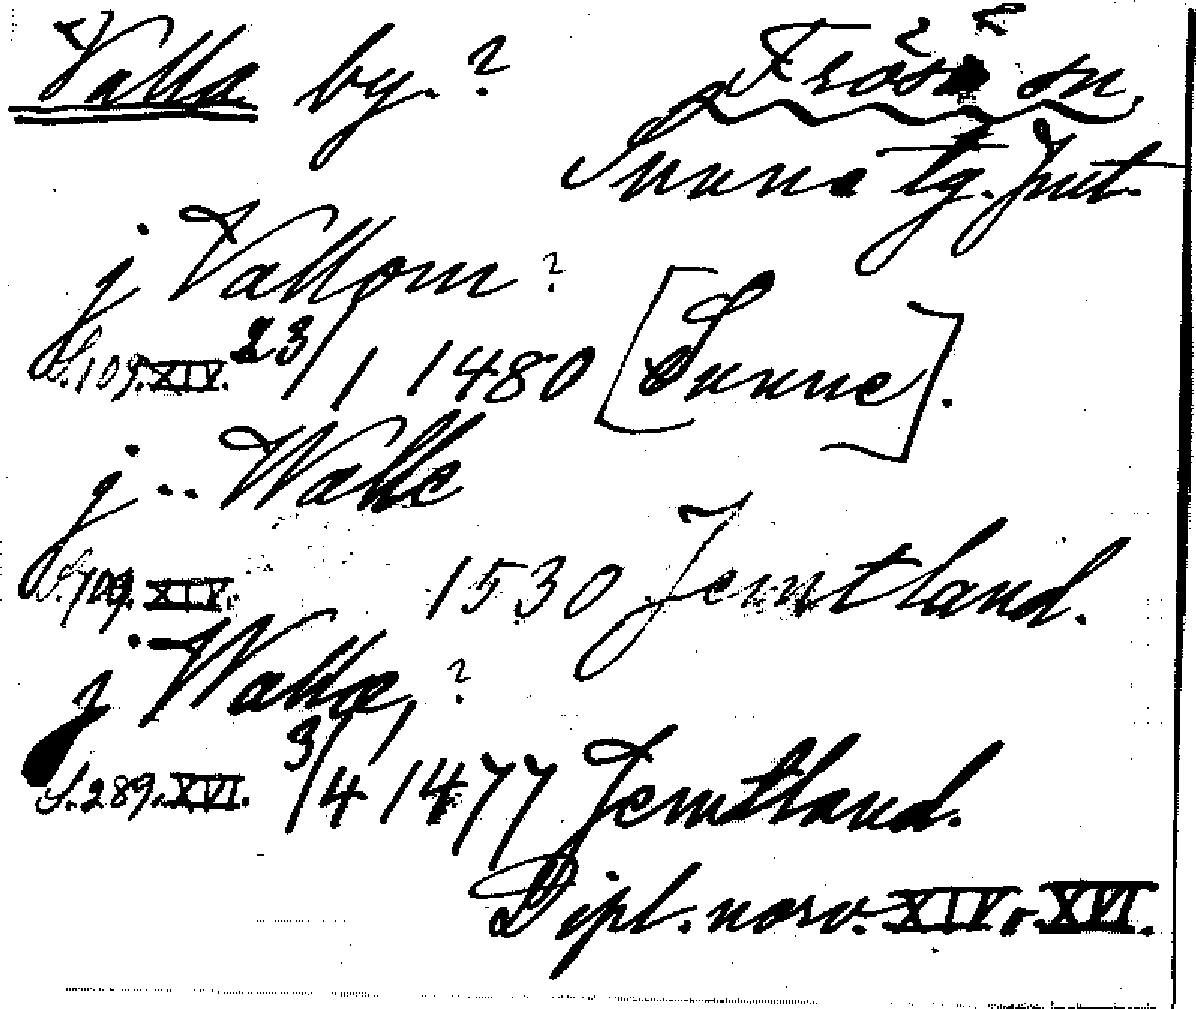 Valla by. ? Frösö sn,
Sunne tg. Jmt.
j Vallom ?
S. 109. XIV. 23/1 1480 [Sunne].
j .. Walle
S. 109. XIV. 1530 Jemtland.
j Walle, ?
S. 289. XVI. 3/4 1477 Jemtland.
Dipl. norv. XIV o. XVI.